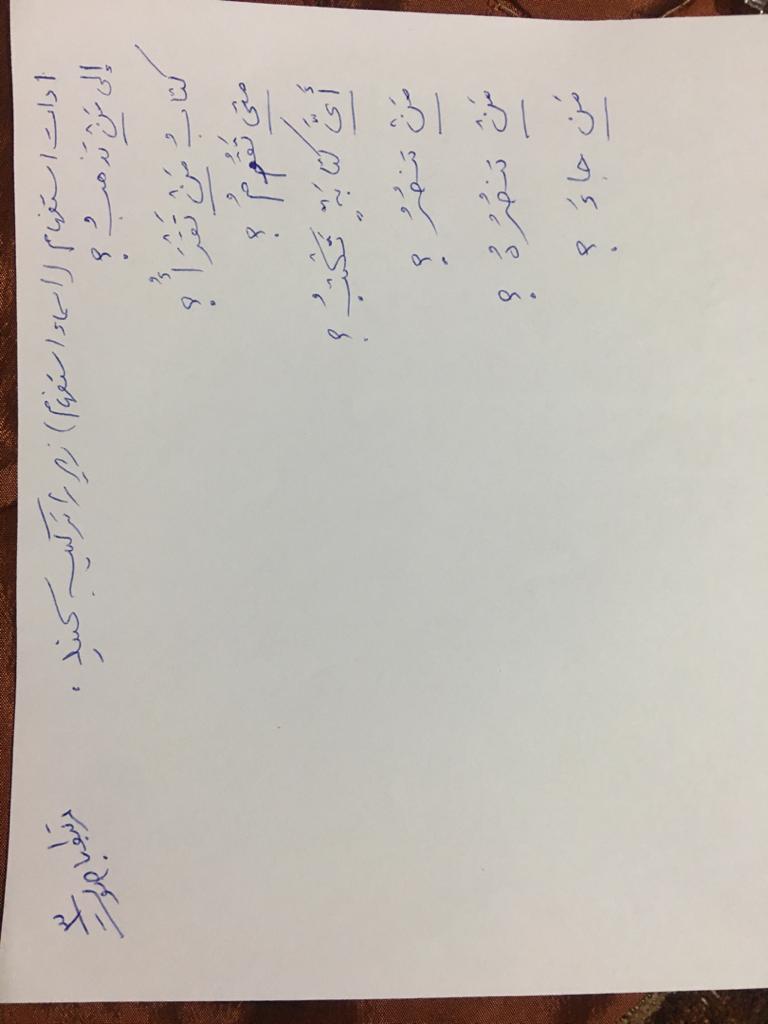 ادات استفهام (اسماء استفهام) زیر را ترکیب کنید .
إلی مَنْ تَذهبُ ؟
کتابُ مَنْ تَقْرَأُ ؟
متی تَقُومُ ؟
أَیَّ کتابَةٍ تَکتُبُ ؟
مَنْ تنصُرُ ؟
مَنْ تنصُرُهُ ؟
مَن جاءَ ؟